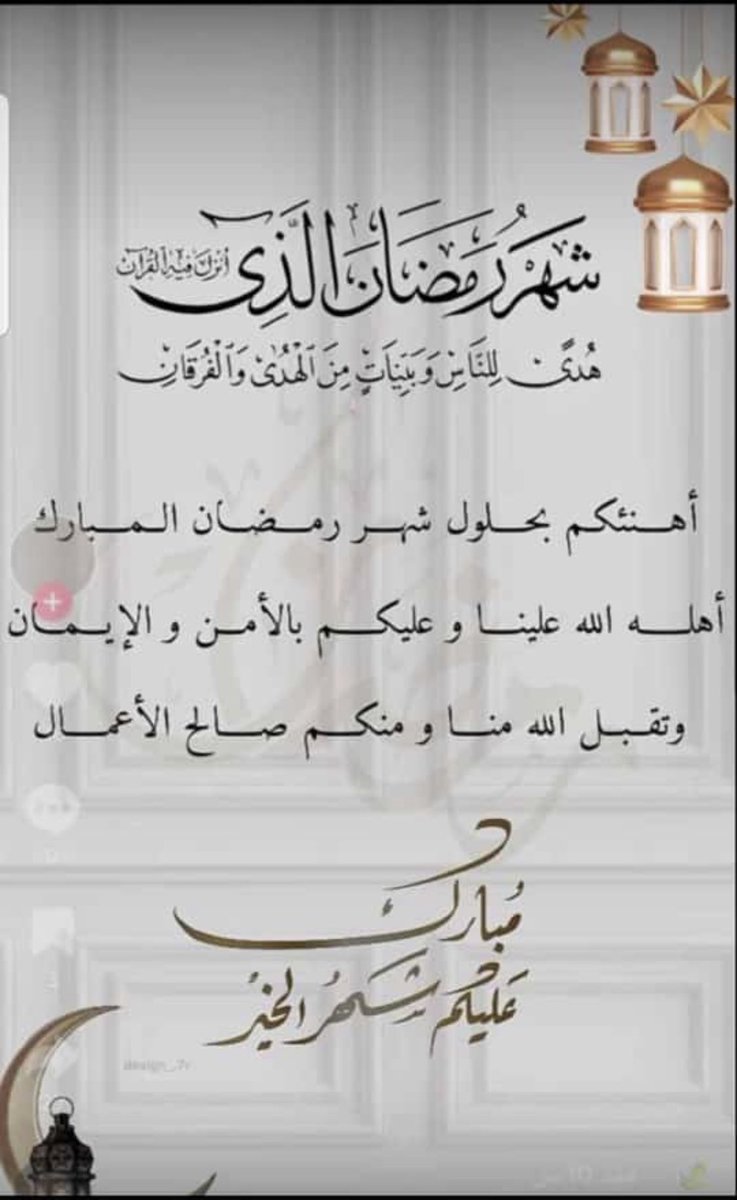 شَهْرُ رَمَضَانَ الَّذِي أُنْزِلَ فِيهِ الْقُرْآنُ
هُدًى لِلنَّاسِ وَبَيِّنَاتٍ مِنَ الْهُدَىٰ وَالْفُرْقَانِ
أهنئكم بحلول شهر رمضان المبارك
أهله الله علينا و عليكم بالأمن و الإيمان
وتقبل الله منا و منكم صالح الأعمال
مُبارك
عَليكُم شَهرُ الخيرُ